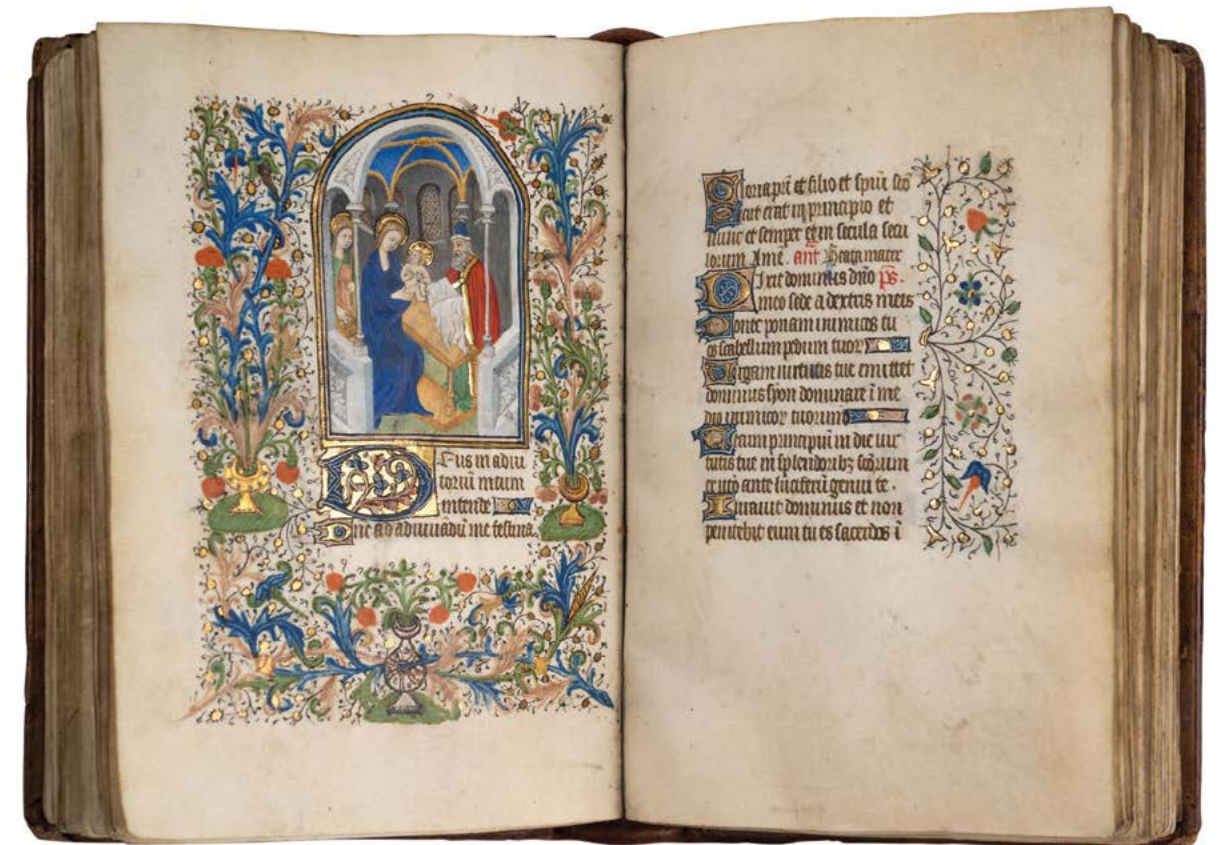 Deus in adiu
toriū meum
intende
Dne ad adiuuādū me festina
Gloria pri et filio et spūi sco
Sicut erat in principio et
nunc et semper et in secula secu
lorum Ame. ant Beata mater
Dixit dominus dño ps.
meo sede a dextris meis
Donec ponam inimicos tu
os scabellum pedum tuor
Virgam uirtutis tue emittet
dominus syon dominare ī me
dio inimicor tuorum
Tecum principiū in die uir
tutis tue in splendoribꝫ scōrum
ex utero ante luciferū genui te.
Iurauit dominus et non
penitebit eum tu es sacerdos ī